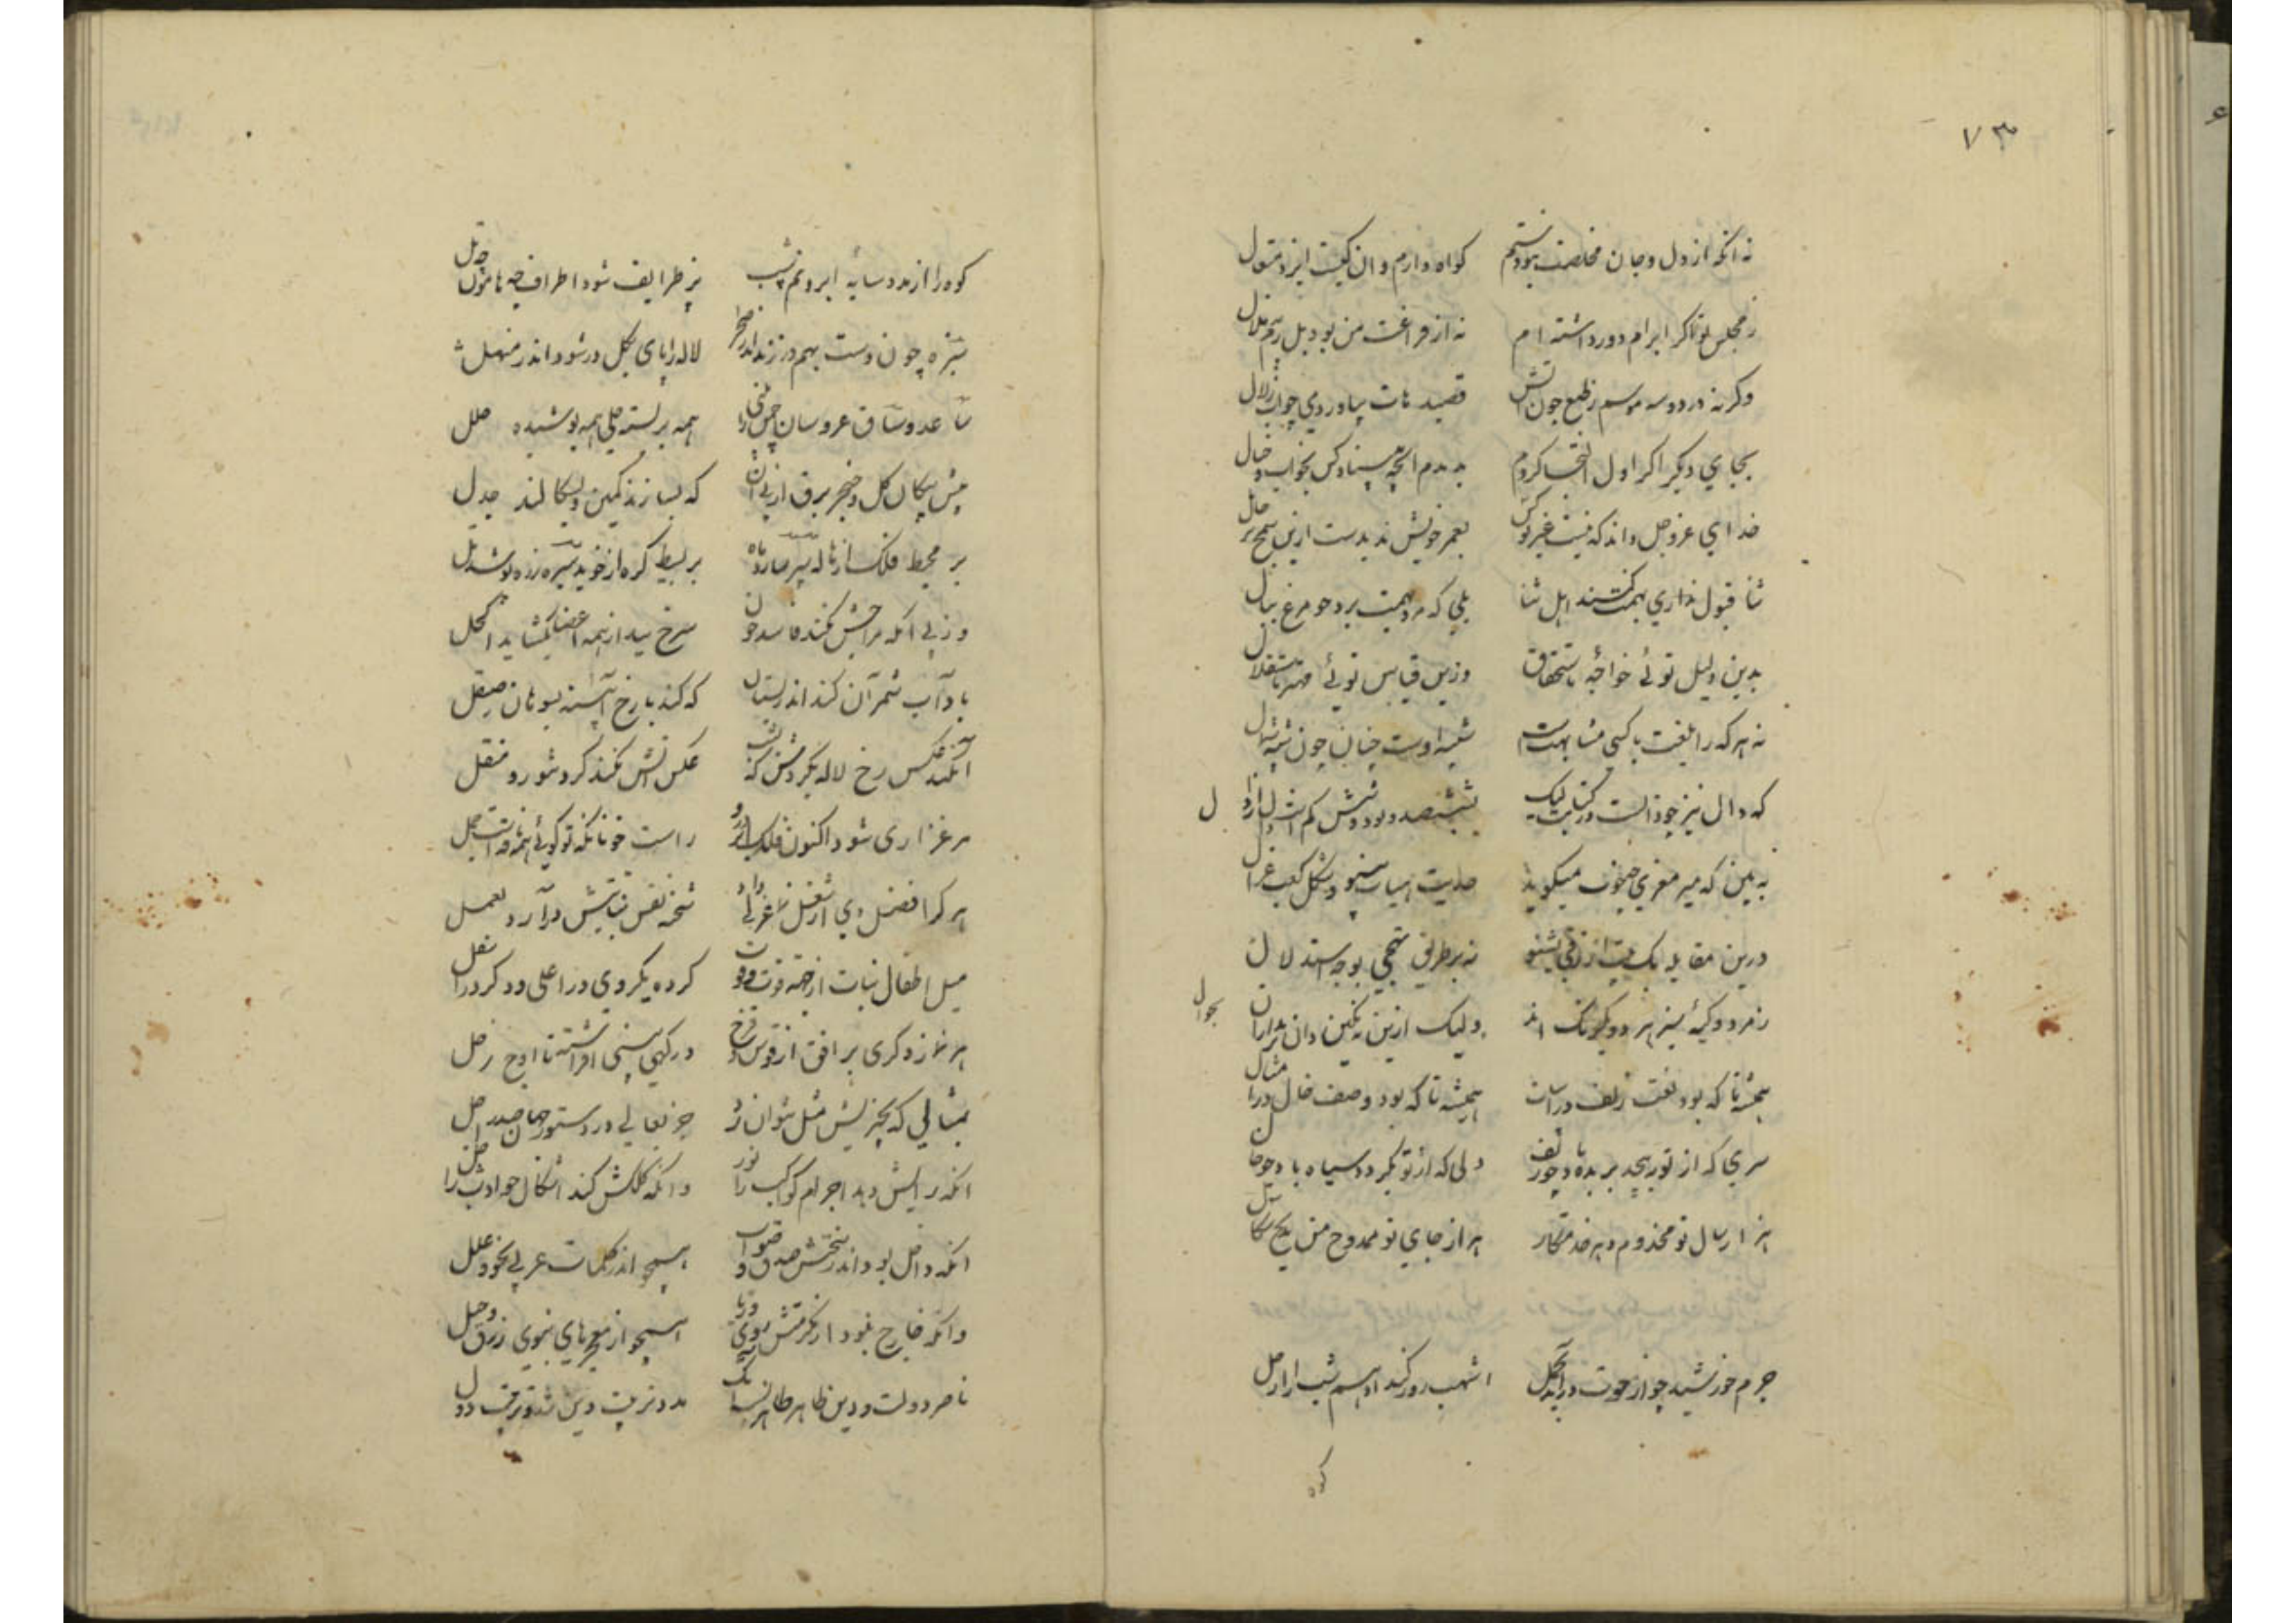 ۷۳
نه انکه از دل و جان مخلصت نبودستم کواه دارم و ان کیست ایزد متعال
ز مجلس تو اکر ابرام دور داشته ام نه از فراغت من بود بل ز بیم ملال
وکرنه در دو سه موسم ز طبع چون اتش قصیدهات بیاوردمی چو اب زلال
بجای دیکر اکر اول التجا کردم بدیدم انچه مبیناد کس بخواب و خیال
خدای عز و جل داند که نیست غیر تو کس بعمر خویش ندیدست ازین
ثنا قبول نداری بهمت کشند اهل ثنا بلی که مرد بهمت پرد چو مرغ ببال
بدین دلیل توئی خواجه باستحقاق وزین قیاس توئی مهتر باستقلال
نه هرکه را بلغت با کسی مشابهت است شبیه اوست چنان چون شبه
که دال نیز چو ذالست در کتابت لیک بششصد و نود و شش کم است دال از ذال
به بین که میر معزی چه خوب میکوید حدیث هیات بینو و شکل کعب غزال
درین مقابله یک بیت ازرقی بشنو نه بر طریق تهجی بوجه استدلال
زمرد و کیه سبز هر دو یکرنک اند ولیک ازین بنکین دان برند ازان بجوال
همیشه تا که بود نعت زلف در ابیات همیشه تا که بود وصف خال در امثال
سری که از تو بپیچد بریده باد چو زلف دلی که از تو بکردد سیاه باد چو خال
هزار سال تو مخدوم و دهر خدمتکار هر از جای تو ممدوح من
جرم خورشید چو از حوت در آید بحمل اشهب روز کند ادهم شب را ارجل
کوه
کوه را از مدد سایه ابر و نم شب پر طرایف شود اطراف چه هامون چه تل
سبزه چون دست بهم در زند اندر صحرا لاله را پای بکل در شود اندر منهل
ساعد و ساق عروسان چمن را همه بر بسته حلی همه پوشیده حلل
پیش پیکان کل و خنجر برق از پی آن که بسازند کمین و بسکالند جدل
بر محیط فلک از هاله سپر سازد ماه بر بسیط کره از خوید زره پوشد تل
وز پی آنکه مزاجش نکند فاسد خون سرخ بید از همه اعضا بکشاید اکحل
باد با آب شمر آن کند اندر بستان که کند با رخ آیینه بسوهان صیقل
آنکند عکس رخ لاله بکردش که عکس آتش نکند کرد تنور و منقل
مرغزاری شود اکنون فلک و ابر درو راست خونانکه تو کوئی همه ناقه است و جمل
هر کرا فضل دی از شغل نما عزلی داد شحنه نفس نباتیش درآرد بعمل
میل اطفال نبات از جهت قوت و قوت کرده یکروی در اعلی و دکر در اسفل
هر نماز دکری بر افق از قوس قزح درکهی بینی افراشته تا اوج زحل
بمثالی که بچیزیش مثل نتوان زد جز بعالی در دستور جهان صدر اجل
انکه رایش دهد اجرام کواکب را نور وانکه کلکش کند اشکال حوادث را حل
انکه داخل بود اندر سخنش صدق و صواب همچو اندر کلمات عربی نحو و علل
وانکه خارج بود از فکرتش روی و ریا همچو از معجزهای نبوی زرق و حیل
ناصر دولت و دین طاهر طاهر نسب آنک مدد تربیت دین شد و ترتیب دول